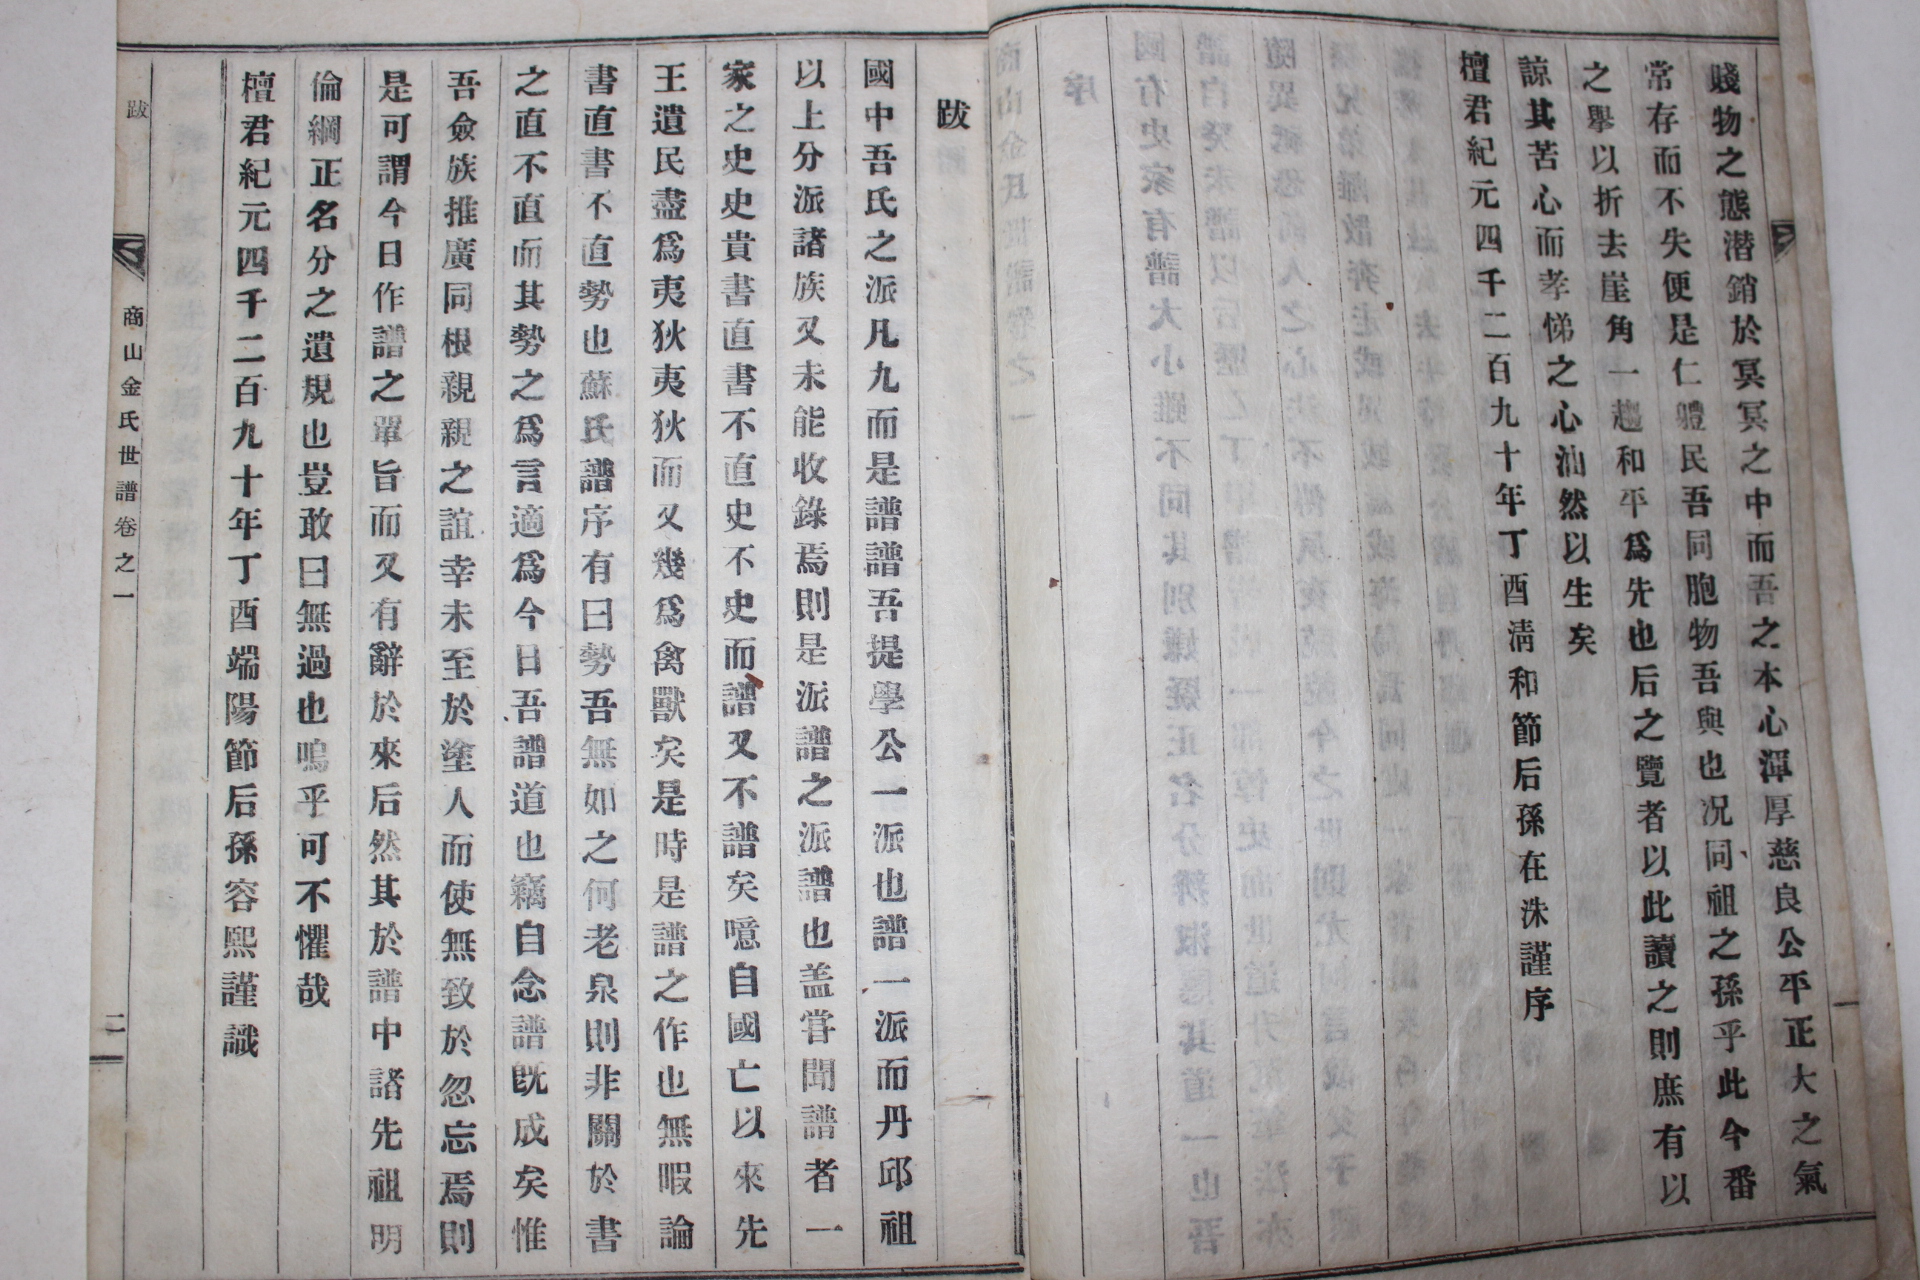 賤物之態潛銷於冥冥之中而吾之本心渾厚慈良公平正大之氣
常存而不失便是仁體民吾同胞物吾與也况同祖之孫乎此今番
之擧以折去崖角一趨和平爲先也后之覽者以此讀之則庶有以
諒其苦心而孝悌之心油然以生矣
檀君紀元四千二百九十年丁酉淸和節后孫在洙謹序
一
跋
國中吾氏之派凡九而是譜譜吾提學公一派也譜一派而丹邱祖
以上分派諸族又未能收錄焉則是派譜之派譜也盖甞聞譜者一
家之史史貴書直書不直史不史而譜又不譜矣噫自國亡以來先
王遺民盡爲夷狄夷狄而又幾爲禽獸矣是時是譜之作也無暇論
書直書不直勢也蘇氏譜序有曰勢吾無如之何老泉則非關於書
之直不直而其勢之爲言適爲今日吾譜道也竊自念譜旣成矣惟
吾僉族推廣同根親親之誼幸未至於塗人而使無致於忽忘焉則
是可謂今日作譜之單旨而又有辭於來后然其於譜中諸先祖明
倫綱正名分之遺規也豈敢曰無過也嗚乎可不懼哉
檀君紀元四千二百九十年丁酉端陽節后孫容熙謹識
跋
商山金氏世譜卷之一
二